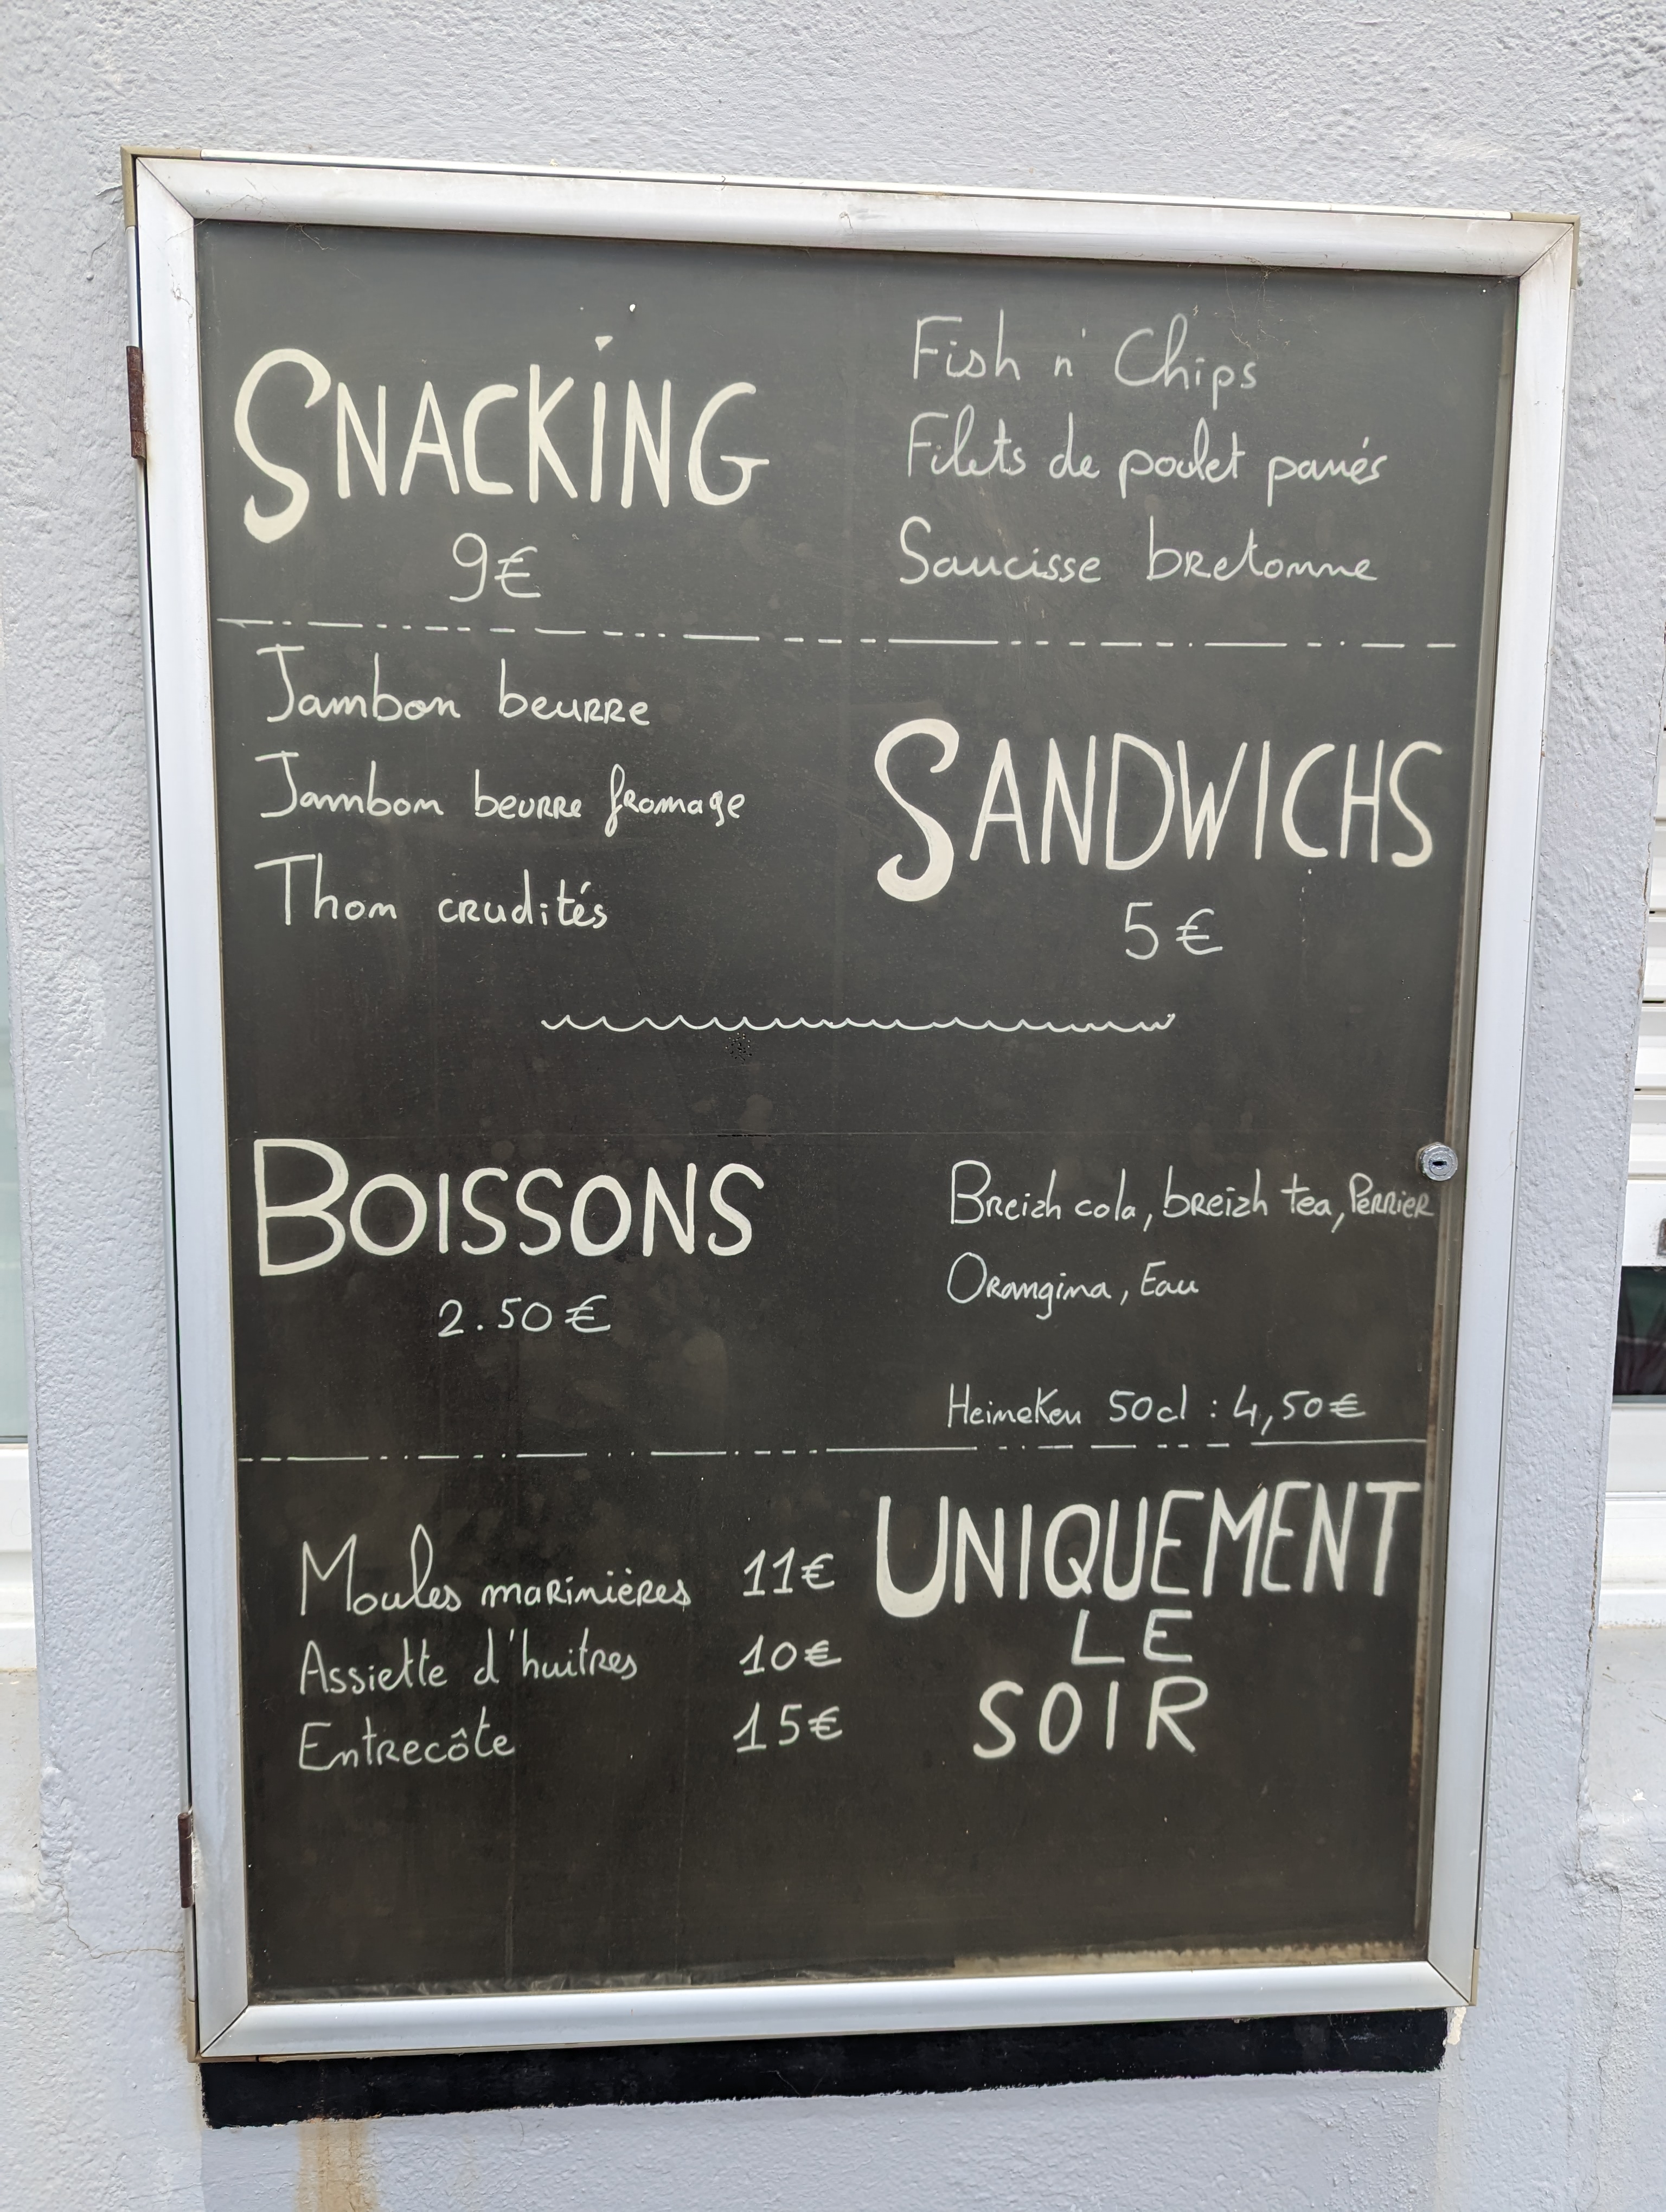 SNACKING
9€
Fish n' Chips
Filets de poulet panés
Saucisse bretonne
Jambon beurre
Jambon beurre fromage
Thon crudités
SANDWICHS
5€
BOISSONS
2.50€
Breizh cola, breizh tea, Perrier
Orangina, Eau
Heineken 50cl : 4,50€
Moules marinières 11€
Assiette d'huitres 10€
Entrecôte 15€
UNIQUEMENT
LE
SOIR